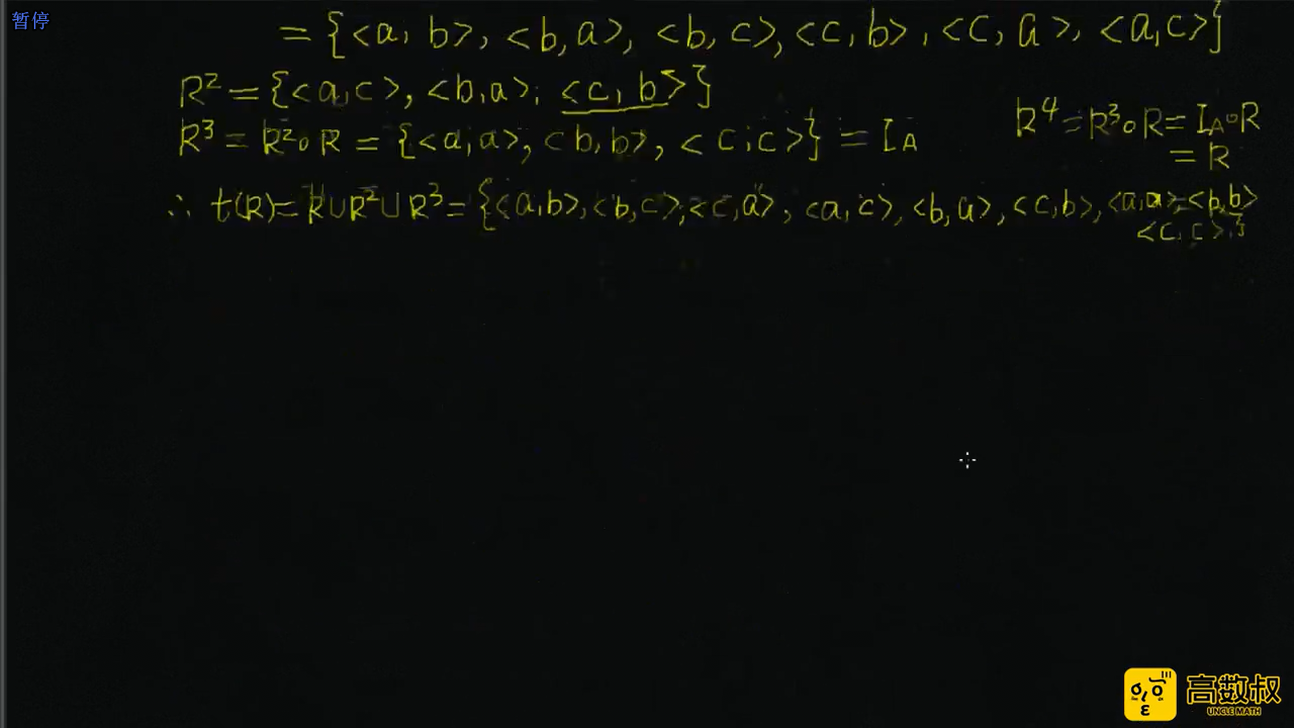 暂停
= {<a, b>, <b,a>, <b, c>, <c, b>, <c, a>, <a,c>}
R² = {<a,c>, <b,a>, <c, b>}
R³ = R²∘R = {<a,a>, <b,b>, <c,c>} = I_A
R⁴ = R³∘R = I_A∘R
= R
∴ t(R) = R∪R²∪R³ = {<a,b>, <b,c>, <c,a>, <a,c>, <b,a>, <c,b>, <a,a>, <b,b>
<c,c>}
高数叔
UNCLE MATH